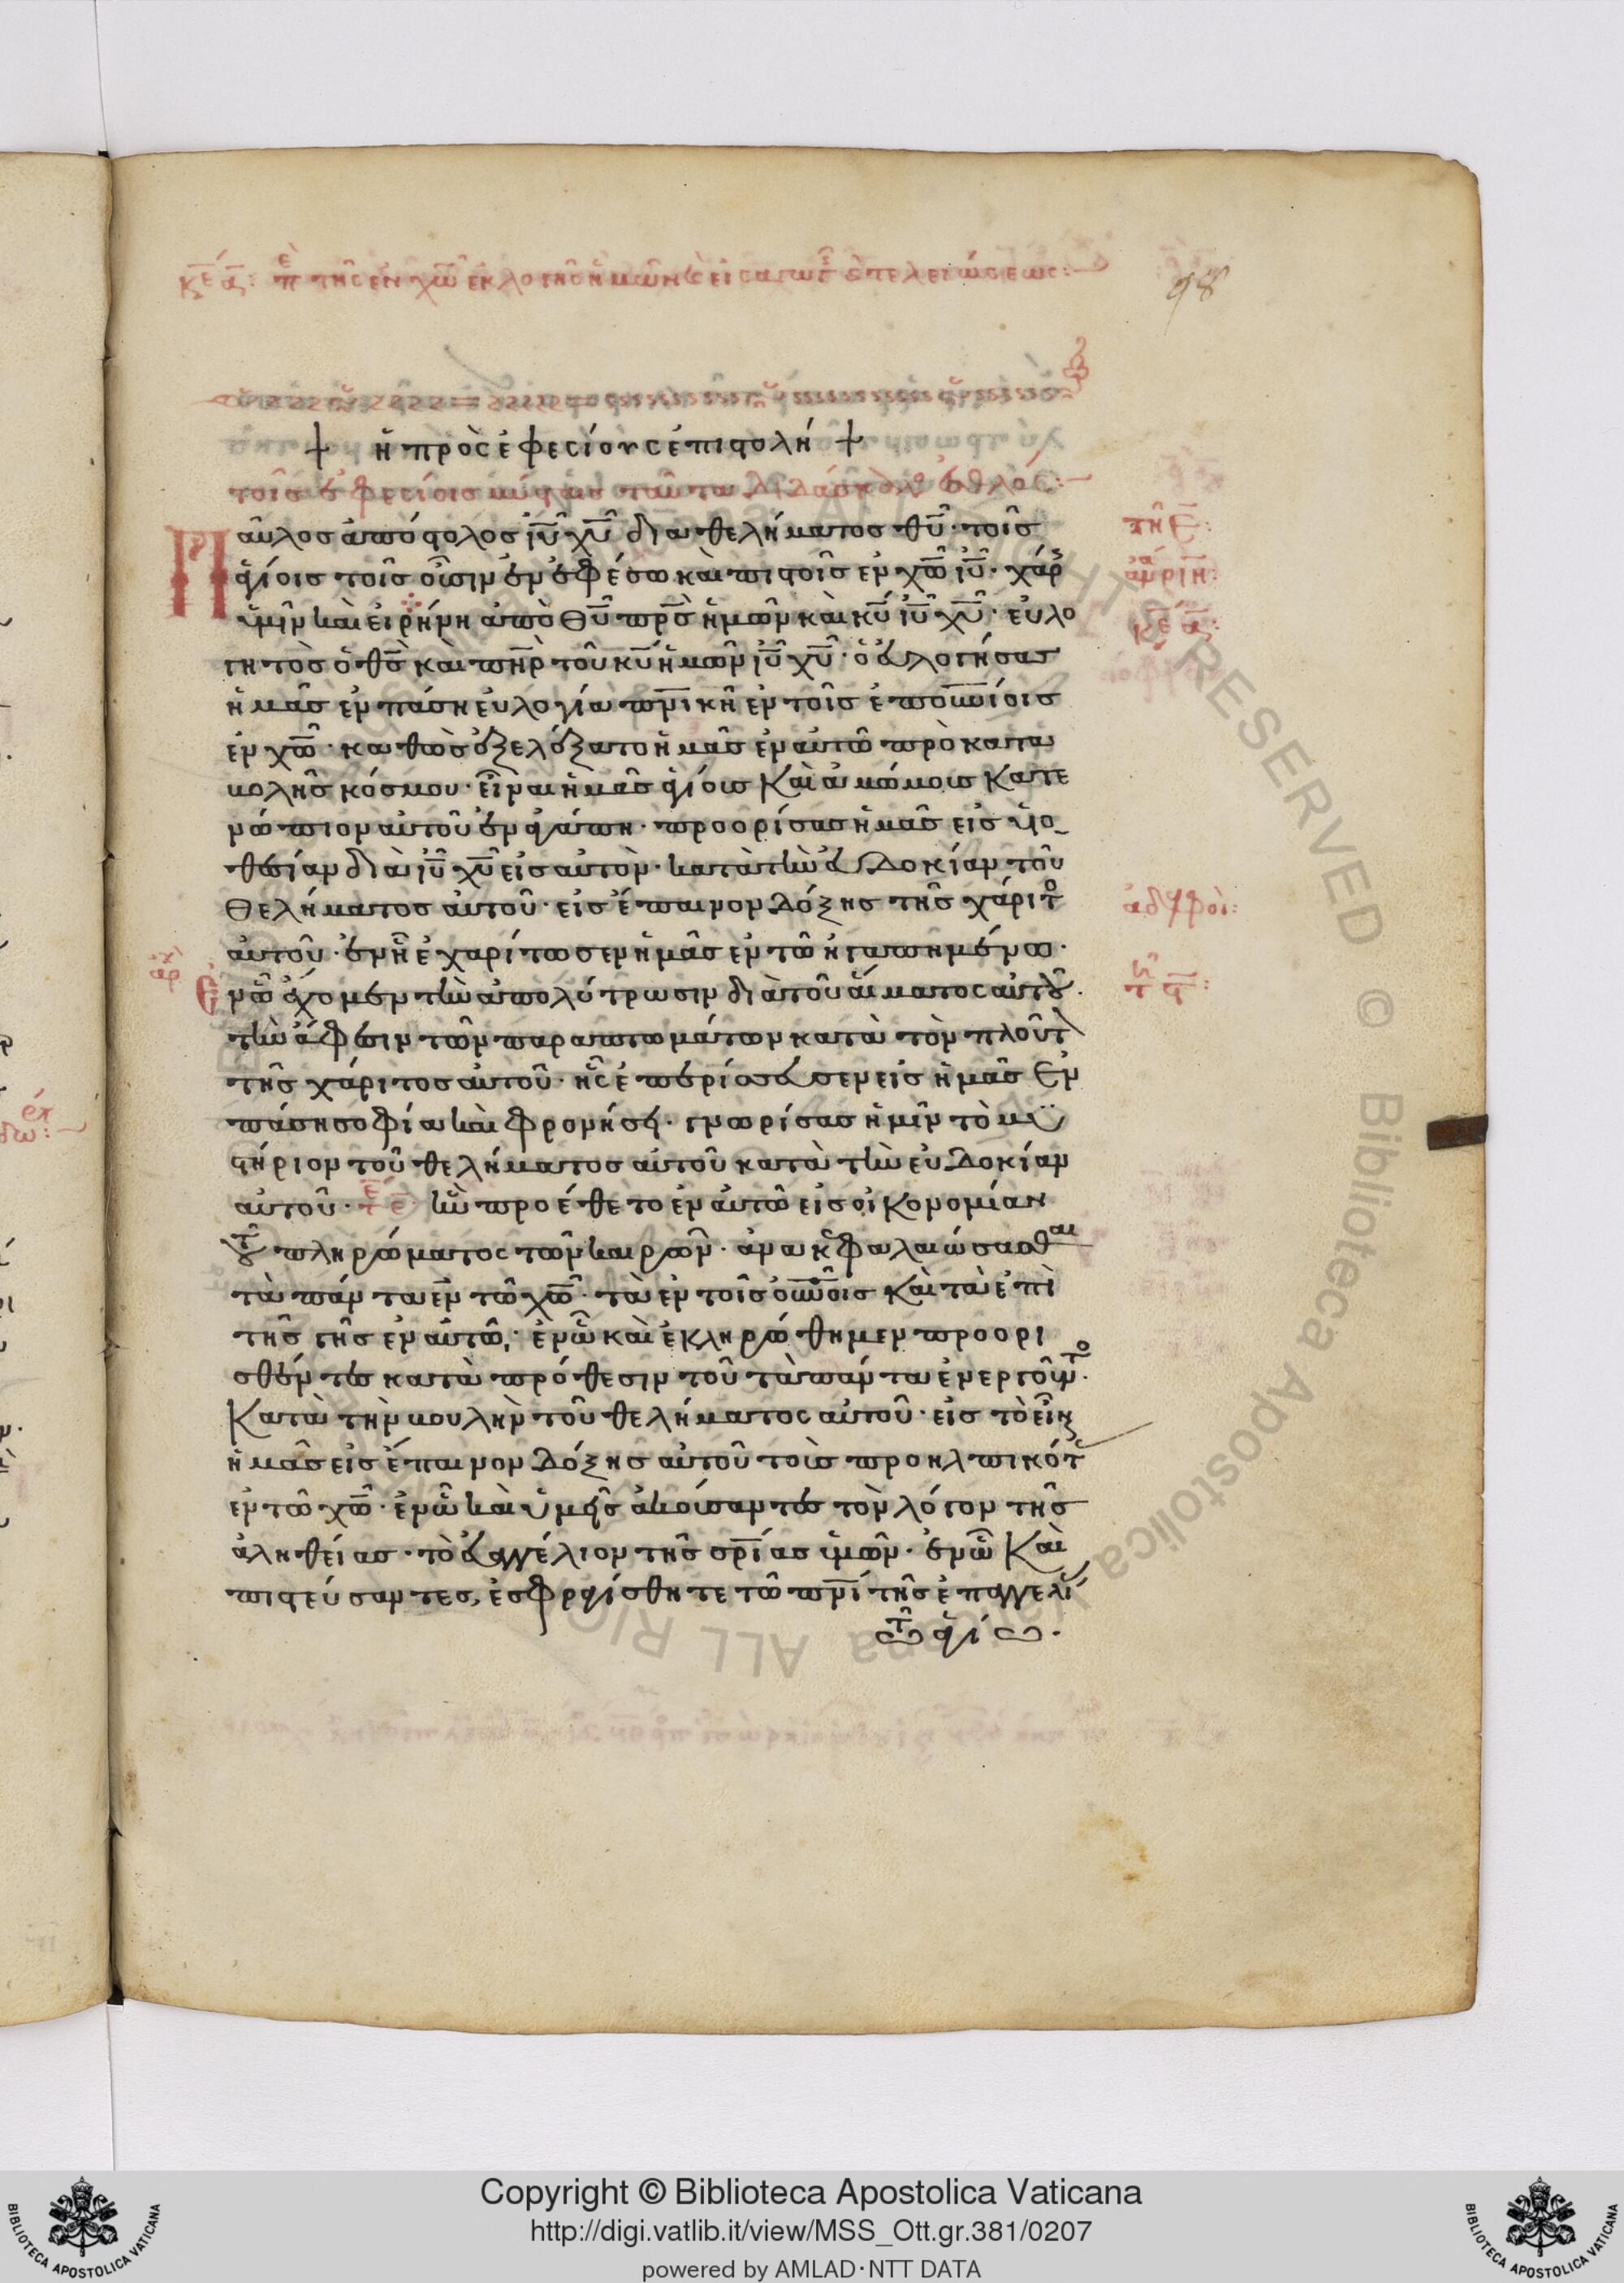 κε̅ α̅: πε τῆς ἐν χω̅ ἐκλογῆς ἡμῶν καὶ εἰσαγωγῆς καὶ τελειώσεως:
98
+ ἡ πρὸς ἐφεσίους ἐπιστολή +
τοῖς ἐφεσίοις μύσταις ταῦτα διδάσκαλος ἐσθλός:
Παῦλος ἀπόστολος ἰυ̅ χυ̅ διὰ θελήματος θυ̅· τοῖς
τῆ ε̅:
ἁγίοις τοῖς οὖσιν ἐν ἐφέσω καὶ πιστοῖς ἐν χω̅ ἰυ̅· χάρις
κυριακη:
ὑμῖν καὶ εἰρήνη ἀπὸ θυ̅ πρς̅ ἡμῶν καὶ κυ̅ ἰυ̅ χυ̅· εὐλο
κε̅ α̅:
γητὸς ὁ θς̅ καὶ πη̅ρ τοῦ κυ̅ ἡμῶν ἰυ̅ χυ̅· ὁ εὐλογήσας
ἡμᾶς ἐν πάση εὐλογία πνι̅κῆ ἐν τοῖς ἐπου̅νίοις
ἐν χω̅· καθὼς ἐξελέξατο ἡμᾶς ἐν αὐτῶ πρὸ κατα
βολῆς κόσμου· εἶναι ἡμᾶς ἁγίους καὶ ἀμώμους κατε
νώπιον αὐτοῦ ἐν ἀγάπη· προορίσας ἡμᾶς εἰς υἱο
θεσίαν διὰ ἰυ̅ χυ̅ εἰς αὐτὸν· κατὰ τὴν εὐδοκίαν τοῦ
θελήματος αὐτοῦ· εἰς ἔπαινον δόξης τῆς χάριτο
ἀδελφοὶ:
αὐτοῦ· ἐν ἧ ἐχαρίτωσεν ἡμᾶς ἐν τῶ ἠγαπημένω·
ἀρχ
Ἐν ὧ ἔχομεν τὴν ἀπολύτρωσιν διὰ τοῦ αἵματος αὐτοῦ·
τὴν ἄφεσιν τῶν παραπτωμάτων κατὰ τὸν πλοῦτον
τῆς χάριτος αὐτοῦ· ἧς ἐπερίσσευσεν εἰς ἡμᾶς ἐν
πάση σοφία καὶ φρονήσει· γνωρίσας ἡμῖν τὸ μυ
στήριον τοῦ θελήματος αὐτοῦ κατὰ τὴν εὐδοκίαν
αὐτοῦ· τε̅ ἣν προέθετο ἐν αὐτῶ εἰς οἰκονομίαν
τοῦ πληρώματος τῶν καιρῶν· ἀνακεφαλαιώσασθαι
τὰ πάντα ἐν τῶ χω̅· τὰ ἐν τοῖς ου̅νοῖς καὶ τὰ ἐπὶ
τῆς γῆς ἐν αὐτῶ· ἐν ὧ καὶ ἐκληρώθημεν προορι
σθέντες κατὰ πρόθεσιν τοῦ τὰ πάντα ἐνεργοῦντο·
κατὰ τὴν βουλὴν τοῦ θελήματος αὐτοῦ· εἰς τὸ εἶναι
ἡμᾶς εἰς ἔπαινον δόξης αὐτοῦ τοὺς προηλπικότας
ἐν τῶ χω̅· ἐν ὧ καὶ ὑμεῖς ἀκούσαντες τὸν λόγον τῆς
ἀληθείας· τὸ εὐαγγέλιον τῆς σρι̅ας ὑμῶν· ἐν ὧ καὶ
πιστεύσαντες, ἐσφραγίσθητε τῶ πνι̅ τῆς ἐπαγγελίας
τῶ ἁγίω·
Copyright © Biblioteca Apostolica Vaticana
http://digi.vatlib.it/view/MSS_Ott.gr.381/0207
powered by AMLAD·NTT DATA
BIBLIOTECA APOSTOLICA VATICANA
BIBLIOTECA APOSTOLICA VATICANA